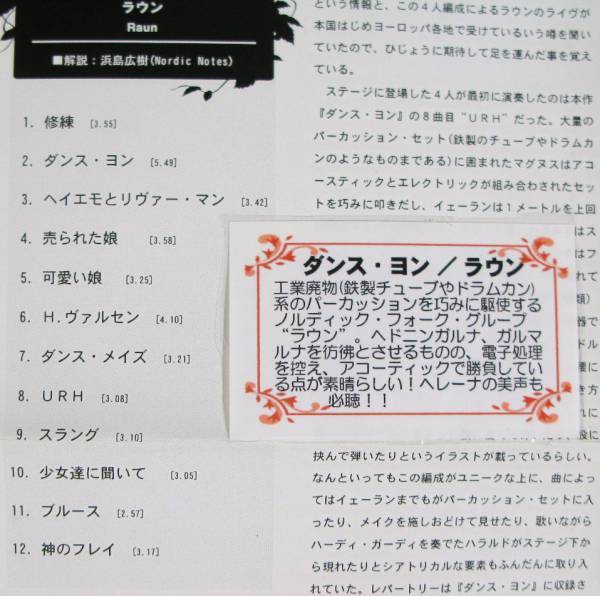 ラウン
Raun
■解説：浜島広樹(Nordic Notes)
1. 修練 [3.55]
2. ダンス・ヨン [5.49]
3. ヘイエモとリヴァー・マン [3.42]
4. 売られた娘 [3.58]
5. 可愛い娘 [3.25]
6. H.ヴァルセン [4.10]
7. ダンス・メイズ [3.21]
8. URH [3.08]
9. スラング [3.10]
10. 少女達に聞いて [3.05]
11. ブルース [2.57]
12. 神のフレイ [3.17]
という情報と、この４人編成によるラウンのライヴが
本国はじめヨーロッパ各地で受けているいう噂を聞い
ていたので、ひじょうに期待して足を運んだ事を覚え
ている。
ステージに登場した４人が最初に演奏したのは本作
『ダンス・ヨン』の８曲目“URH”だった。大量の
パーカッション・セット(鉄製のチューブやドラムカ
ンのようなものまである)に囲まれたマグヌスはアコ
ースティックとエレクトリックが組み合わされたセッ
トを巧みに叩きだし、イェーランは１メートルを上回
ダンス・ヨン／ラウン
工業廃物(鉄製チューブやドラムカン)
系のパーカッションを巧みに駆使する
ノルディック・フォーク・グループ
“ラウン”。ヘドニンガルナ、ガルマ
ルナを彷彿とさせるものの、電子処理
を控え、アコーティックで勝負してい
る点が素晴らしい！ヘレーナの美声も
必聴！！
挟んで弾いたりというイラストが載っているらしい。
なんといってもこの編成がユニークな上に、曲によっ
てはイェーランまでもがパーカッション・セットに入
ったり、メイクを施しおどけて見せたり、歌いながら
ハーディ・ガーディを奏でたハラルドがステージ下か
ら現れたりとシアトリカルな要素もふんだんに取り入
れていた。レパートリーは『ダンス・ヨン』に収録さ